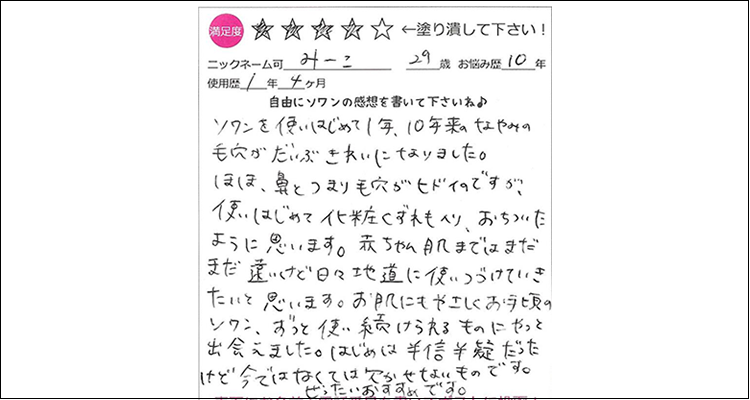 満足度 ★★★★☆ ←塗り潰して下さい！
ニックネーム可 みーこ 29歳 お悩み歴10年
使用歴1年4ヶ月
自由にソワンの感想を書いて下さいね♪
ソワンを使いはじめて1年、10年来のなやみの
毛穴がだいぶきれいになりました。
ほほ、鼻とつまり毛穴がヒドイのですが、
使いはじめて化粧くずれもへり、おちついた
ように思います。赤ちゃん肌まではまだ
まだ遠いけど日々地道に使いつづけていき
たいと思います。お肌にもやさしくお手頃の
ソワン、ずっと使い続けられるものにやっと
出会えました。はじめは半信半疑だった
けど今ではなくては欠かせないものです。
ぜったいおすすめです。